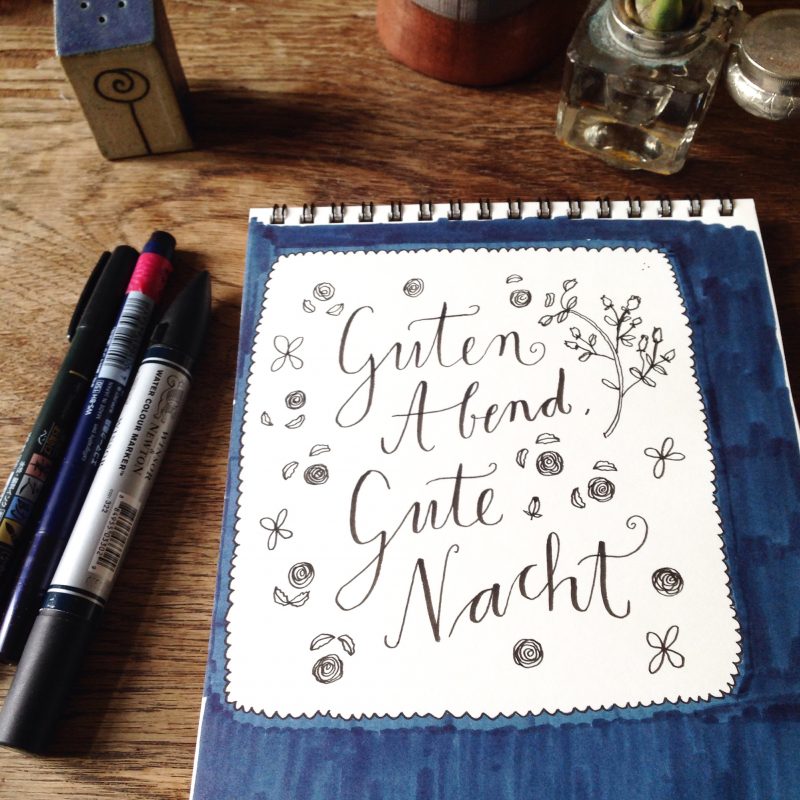 Guten
Abend,
Gute
Nacht
WINSOR
& NEWTON
WATER COLOUR MARKER